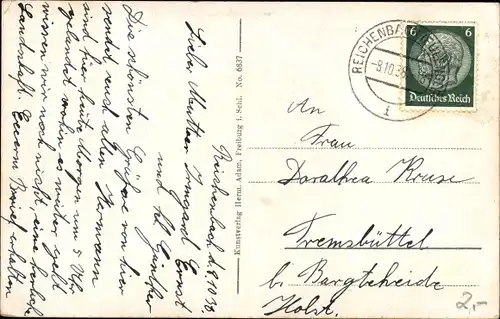 Reichenbach d. 8.10.36
Liebe Mutter, Irmgard Ernst
und kl. Günther
Die schönsten Grüße von hier
sendet euch allen Hermann
sind hier heute Morgen um 5 Uhr
gelandet wohin es weiter geht
wissen wir noch nicht, eine herrliche
Landschaft. Euern Brief erhalten
Kunstverlag Herm. Adam, Freiburg i. Schl. No. 6837
REICHENBACH
-8.10.36
6 6
Deutsches Reich
An
Frau
Dorathea Kruse
Tremsbüttel
b. Bargteheide
Holst.
2,-